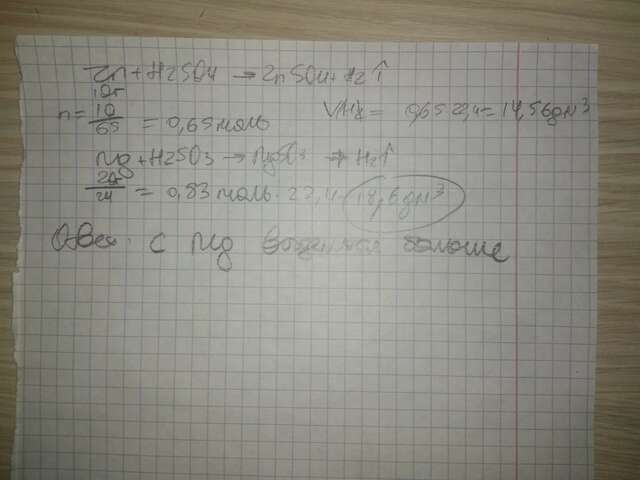 Zn + H2SO4 → ZnSO4 + H2↑
10г
n = 10/65 = 0,65 моль V(H2) = 0,65 · 22,4 = 14,56 дм³
Mg + H2SO3 → MgSO3 + H2↑
20/24 = 0,83 моль · 22,4 · 18,6 дм³
Ответ: с Mg выделится больше